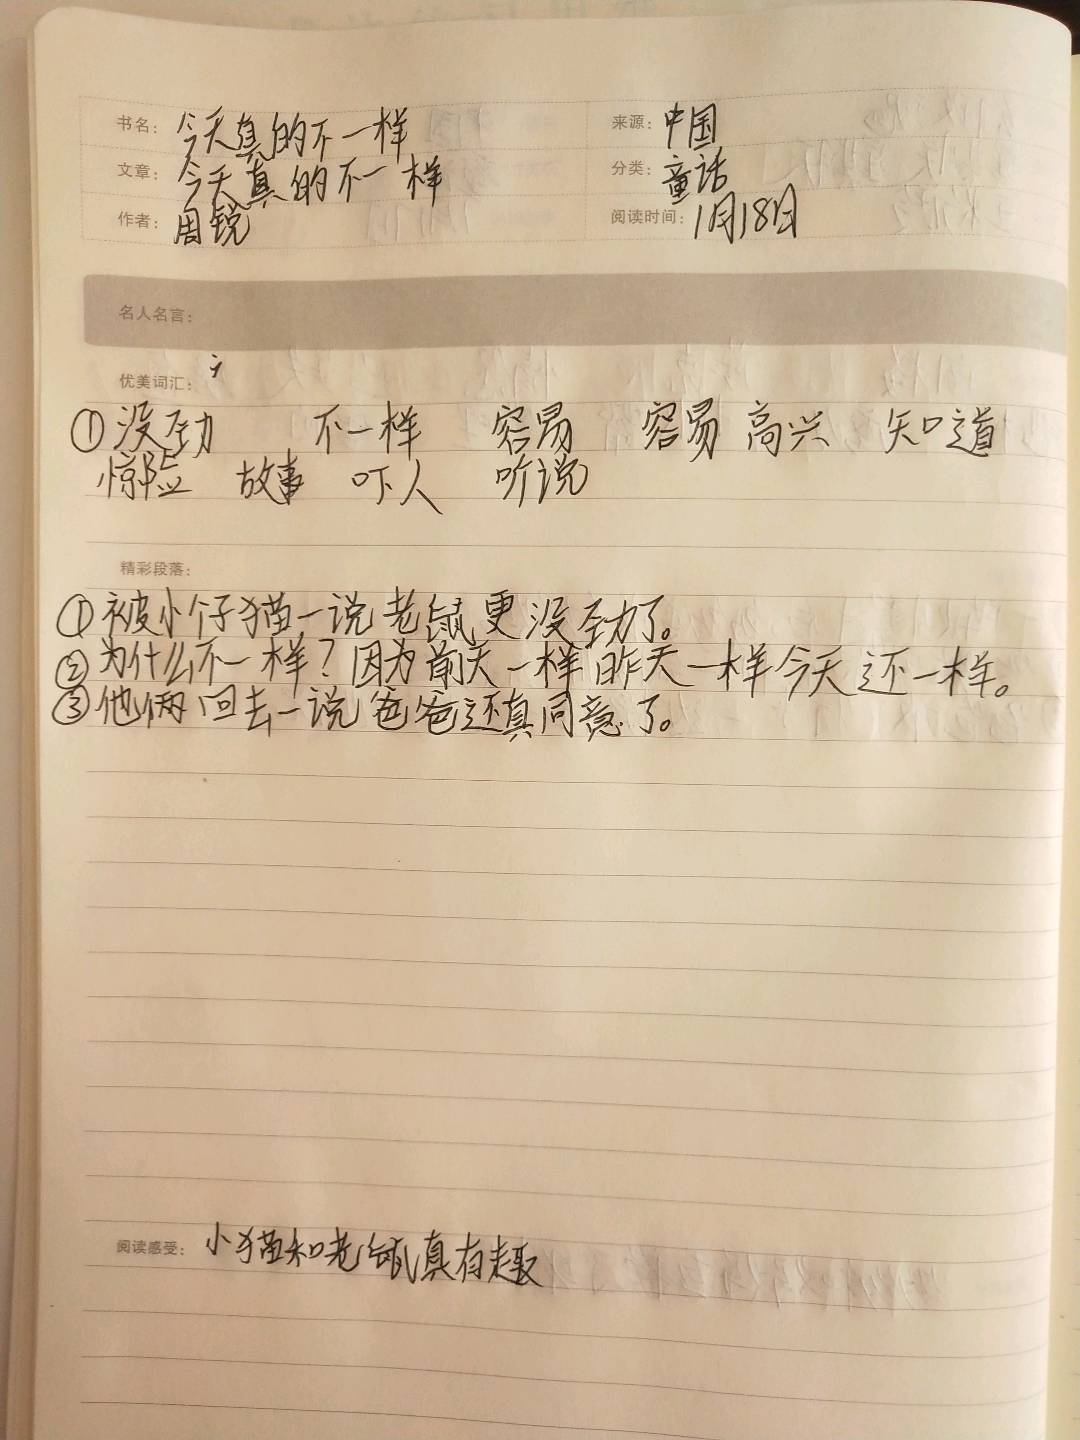 书名：今天真的不一样 来源：中国
文章：今天真的不一样 分类：童话
作者：周锐 阅读时间：1月18日
名人名言：
优美词汇：
①没劲 不一样 容易 容易 高兴 知道
惊险 故事 吓人 听说
精彩段落：
①被小仔猫一说老鼠更没劲了。
②为什么不一样？因为前天一样昨天一样今天还一样。
③他俩回去一说爸爸还真同意了。
阅读感受：小猫和老鼠真有趣